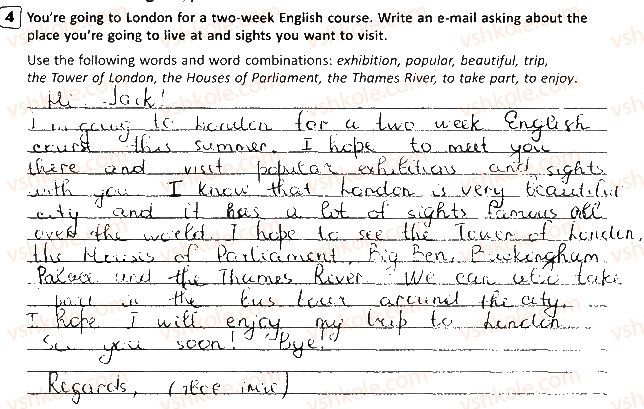 4 You're going to London for a two-week English course. Write an e-mail asking about the
place you're going to live at and sights you want to visit.
Use the following words and word combinations: exhibition, popular, beautiful, trip,
the Tower of London, the Houses of Parliament, the Thames River, to take part, to enjoy.
Hi Jack!
I'm going to London for a two week English
course this summer. I hope to meet you
there and visit popular exhibitions and sights
with you. I know that London is very beautiful
city and it has a lot of sights famous all
over the world. I hope to see the Tower of London,
the Houses of Parliament, Big Ben, Buckingham
Palace and the Thames River. We can also take
part in the bus tour around the city.
I hope I will enjoy my trip to London
See you soon! Bye!
Regards, (твоє ім'я)